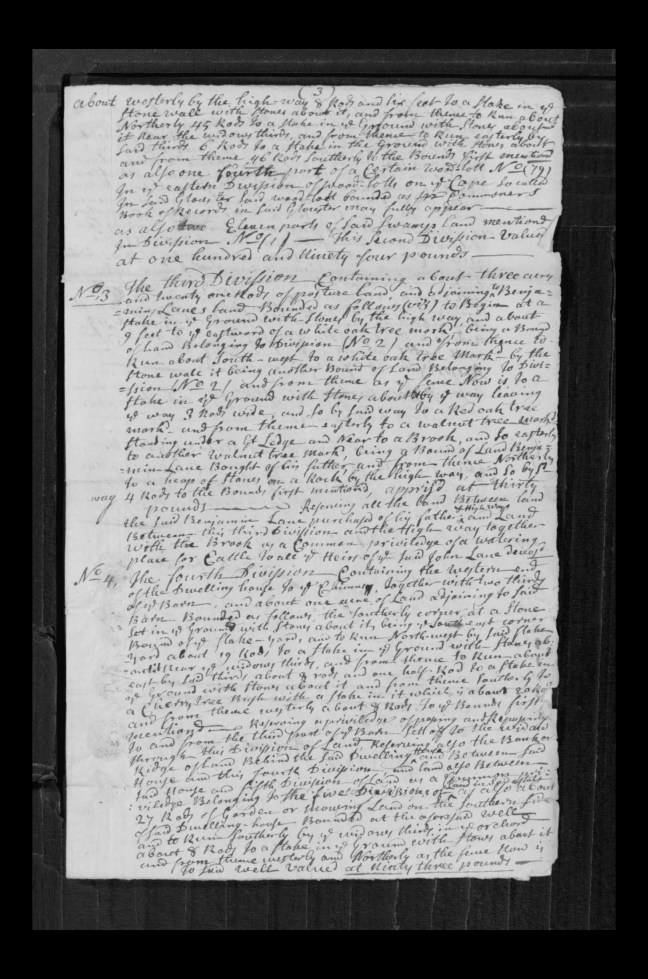 (3)
about westerly by the high-way 8 Rods and six feet to a stake in ye
stone wall with stones about it, and from thence to Run about
Northerly 45 Rods to a stake in ye Ground with stones about
it Near the widows thirds, and from thence to Run easterly by
said thirds 6 Rods to a stake in the Ground with stones about
and from thence 46 Rods southerly to the Bounds first mentiond
as also one fourth part of a Certain woodlott No (79)
In ye eastern Division of wood-lotts on ye Cape so called
In said Glocester said wood-lott bounded as the Commoners
Book of Records in said Glocester may fully appear
as also two Eleven parts of said Swamps Land mentiond
In Division No (1) This second Division Valued
at one hundred and Ninety four pounds
No 3 The third Division Containing about three acres
and twenty one Rods of posture land, and adjoining to Benja=
=min Lanes land Bounded as follows (viz) to Begin at a
stake in ye Ground with stones by the high way and about
9 feet to ye eastward of a white oak tree markd, being a Bound
of Land Belonging to Division (No 2) and from thence to
Run about South-west to a white oak tree Markd by the
stone wale it being another Bound of Land Belonging to Divi=
=sion (No 2) and from thence as ye fence Now is to a
stake in ye Ground with stones about it by ye way leaving
ye way 3 Rods wide, and so by said way to a Red oak tree
markd and from thence easterly to a walnut tree markd
standing under a Gt Ledge and Near to a Brook, and so easterly
to another walnut tree markd, being a Bound of Land Benja=
=min Lane Bought of his father and from thence Northerly
to a heap of stones on a Rock by the high way, and so by sd
way 4 Rods to the Bounds first mentiond, apprisd at thirty
pounds Reserving all the land Between land
the said Benjamin Lane purchased of his father & High Way and Land
Between this third Division and the High way together
with the Brook as a Common priviledge of a watering
place for Cattle to all ye Heirs of ye said John Lane Deceasd
No 4, The fourth Division Containing the western end
of the Dwelling house to ye Chimney, together with two thirds
of ye Barn, and about one acre of Land adjoining to said
Barn Bounded as follows, the southerly corner at a stone
set in ye Ground with stones about it, being ye South east corner
Bound of ye stake-yard, and to Run North west by said stake
yard about 19 Rods to a stake in ye Ground with stones ab=
=out it Near ye widows thirds, and from thence to Run about
east by said thirds about 8 rods and one half Rod to a stake in
ye Ground with stones about it and from thence southerly to
a Cherry tree Bush with a stake in it which is about 20 Rods
and from thence westerly about 8 Rods to ye Bounds first
mentiond Reserving a priviledge of passing and Repassing
to and from the third part of ye Barn sett off to the widow
through this Division of Land Reserving also the Bank or
Ridge of Land Behind the said Dwelling House and Between said
House and this fourth Division and land also Between
said House and fifth Division of Land as a Common
=viledge Belonging to the five Divisions of as also about
27 Rods of Gorden or mowing Land on the southern side
of said Dwelling-house Bounded at the aforesaid well
and to Run southerly by ye widows thirds in ye orchard
about 8 Rods to a stake in ye Ground with stones about it
and from thence westerly and Northerly as the fence Now is
to said well Valued at Ninty three pounds